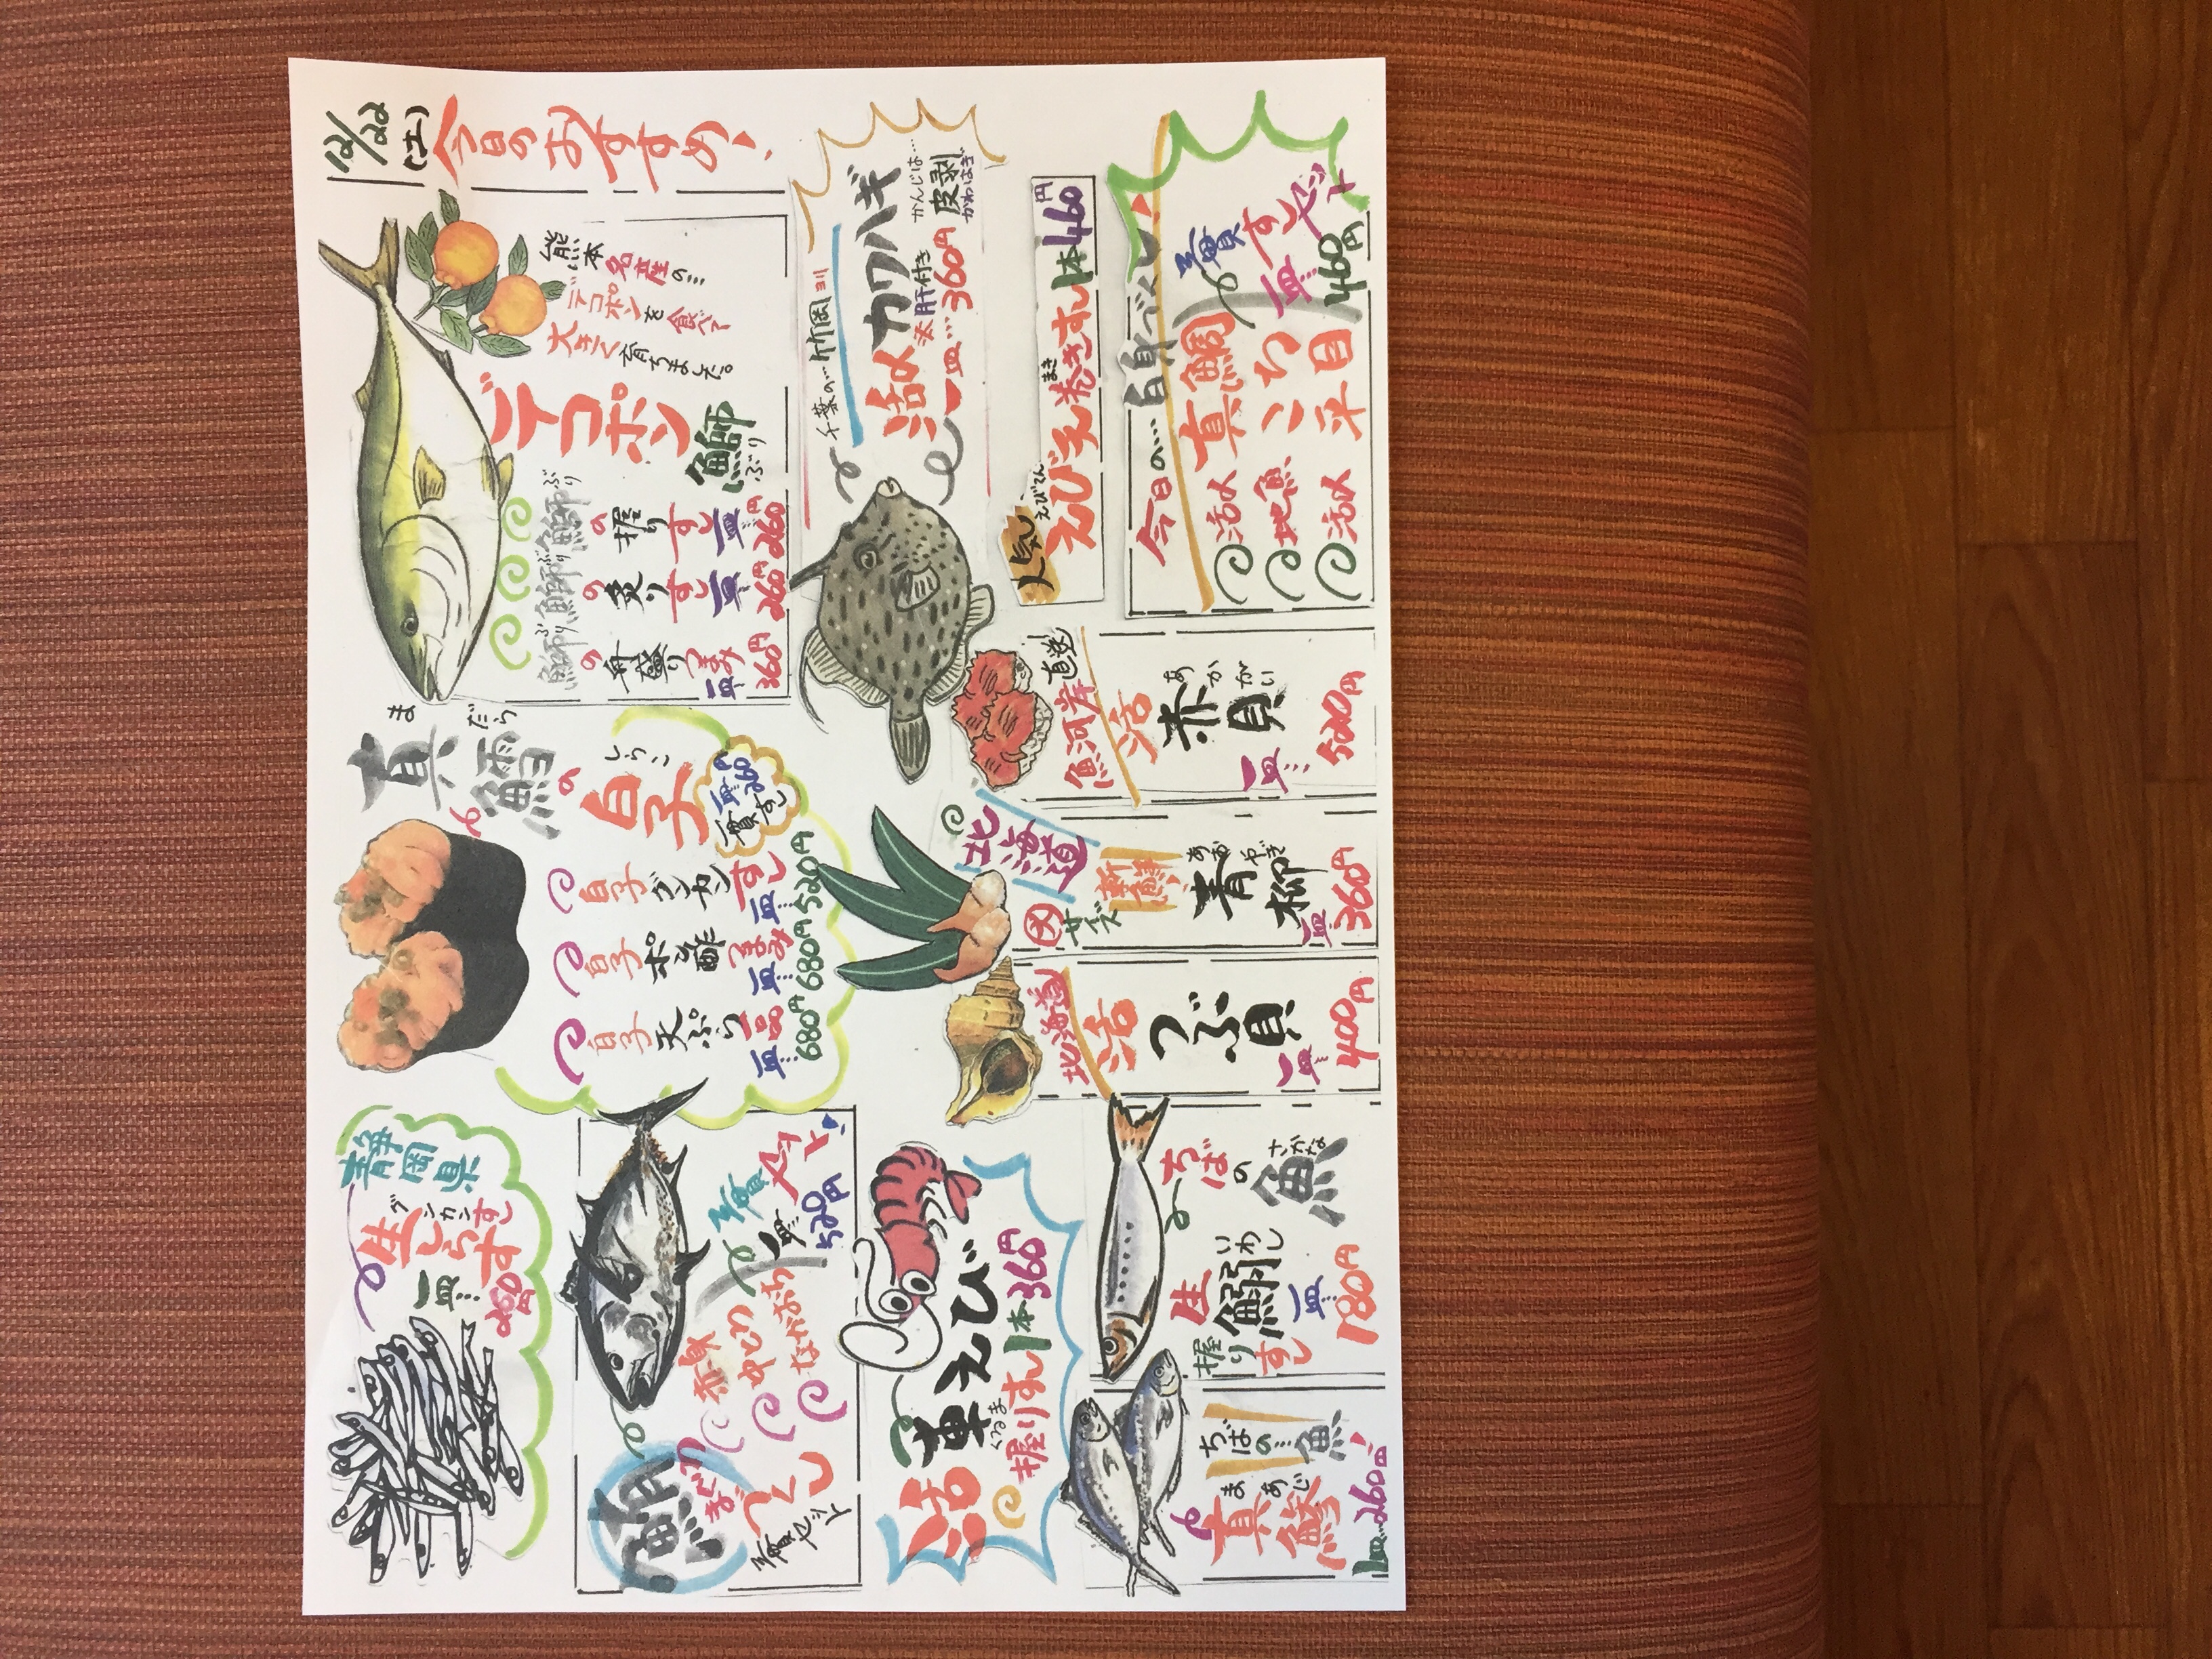 12/22
(土)
今日のおすすめ
熊本名産の…
デコポンを食べて
大きく育ちました。
デコポン
鰤
ぶり
鰤の握りすし
一皿…260円
鰤の炙りすし
一皿…260円
鰤の舟盛りつまみ
一皿…360円
ぶり
ぶり
ぶり
真鱈の
ま だら
白子
しらこ
一貫すし
一皿…260円
白子グンカンすし
一皿…520円
白子ポン酢つまみ
一皿…680円
白子天ぷら一品
一皿…680円
静岡県
グンカンすし
生しらす
一皿…260円
千葉の…竹岡
活〆カワハギ
※肝付き
一皿…360円
かんじは…
皮剥
かわはぎ
鮪
まぐろ
づくし
三貫セット
赤身
中とろ
なかおち
三貫セット
一皿
520円
人気
えびてん
えび天巻きすし
まき
1本460円
活
車えび
くるま
握りすし
1本360円
今日の…白身づくし
活〆真鯛
地魚こち
活〆平目
三貫すしセット
一皿…460円
魚河岸直送
活
赤貝
あかがい
一皿…520円
北海道
大サイズ
新鮮
青柳
あおやぎ
一皿…360円
北海道
活
つぶ貝
一皿…400円
ちばの魚
さかな
生鰯
いわし
握りすし
一皿…180円
ちばの…魚
真鯵
まあじ
1皿…260円